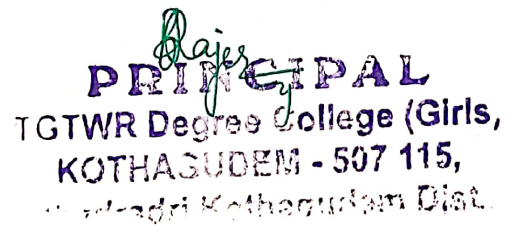 PRINCIPAL
TGTWR Degree College (Girls,
KOTHAGUDEM - 507 115,
Kothagudem Dist.